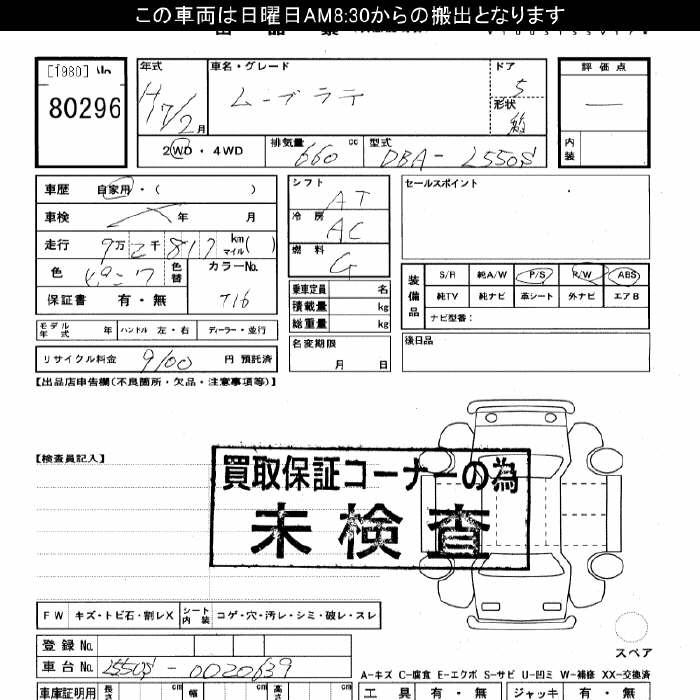 この車両は日曜日AM8:30からの搬出となります
[1980]
80296
年式
H17/2月
車名・グレード
ムーブラテ
ドア
5
形状
箱
2WD・4WD
排気量
660 cc
型式
DBA-L550S
評価点
―
内装
車歴 自家用・( )
車検 年 月
走行 9万2千817 km マイル( )
色 ピンク 色替
カラーNo.
T16
保証書 有・無
モデル年式 年 ハンドル 左・右 ディーラー・並行
リサイクル料金 9100 円 預託済
シフト
AT
冷房
AC
燃料
G
乗車定員 名
積載量 kg
総重量 kg
名変期限
月 日
セールスポイント
装備品
S/R 純A/W P/S P/W ABS
純TV 純ナビ 革シート 外ナビ エアB
ナビ型番:
後日品
【出品店申告欄(不良箇所・欠品・注意事項等)】
【検査員記入】
買取保証コーナーの為
未検査
FW キズ・トビ石・割レX シート内装 コゲ・穴・汚レ・シミ・破レ・スレ
登録No.
車台No. L550S-0020639
スペア
A-キズ C-腐食 E-エクボ S-サビ U-凹ミ W-補修 XX-交換済
車庫証明用 長さ cm 幅 cm 高さ cm
工具 有・無 ジャッキ 有・無